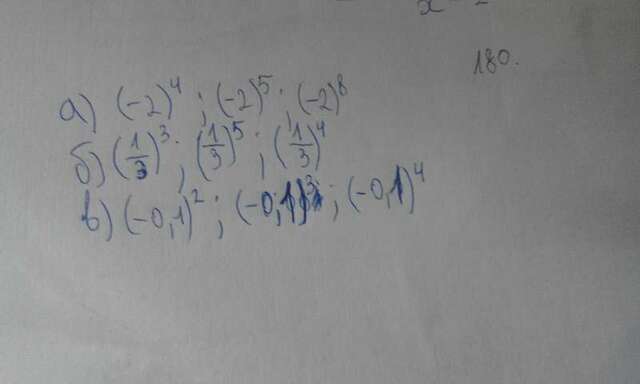 180.
а) (-2)⁴ ; (-2)⁵ ; (-2)⁸
б) (1/3)³ ; (1/3)⁵ ; (1/3)⁴
в) (-0,1)² ; (-0,1)³ ; (-0,1)⁴